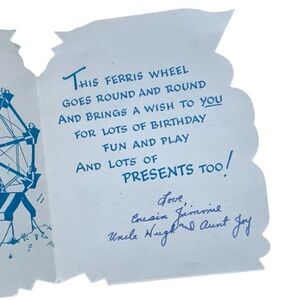 THIS FERRIS WHEEL
GOES ROUND AND ROUND
AND BRINGS A WISH TO YOU
FOR LOTS OF BIRTHDAY
FUN AND PLAY
AND LOTS OF
PRESENTS TOO!
Love
Cousin Jimmie
Uncle Hugh and Aunt Joy